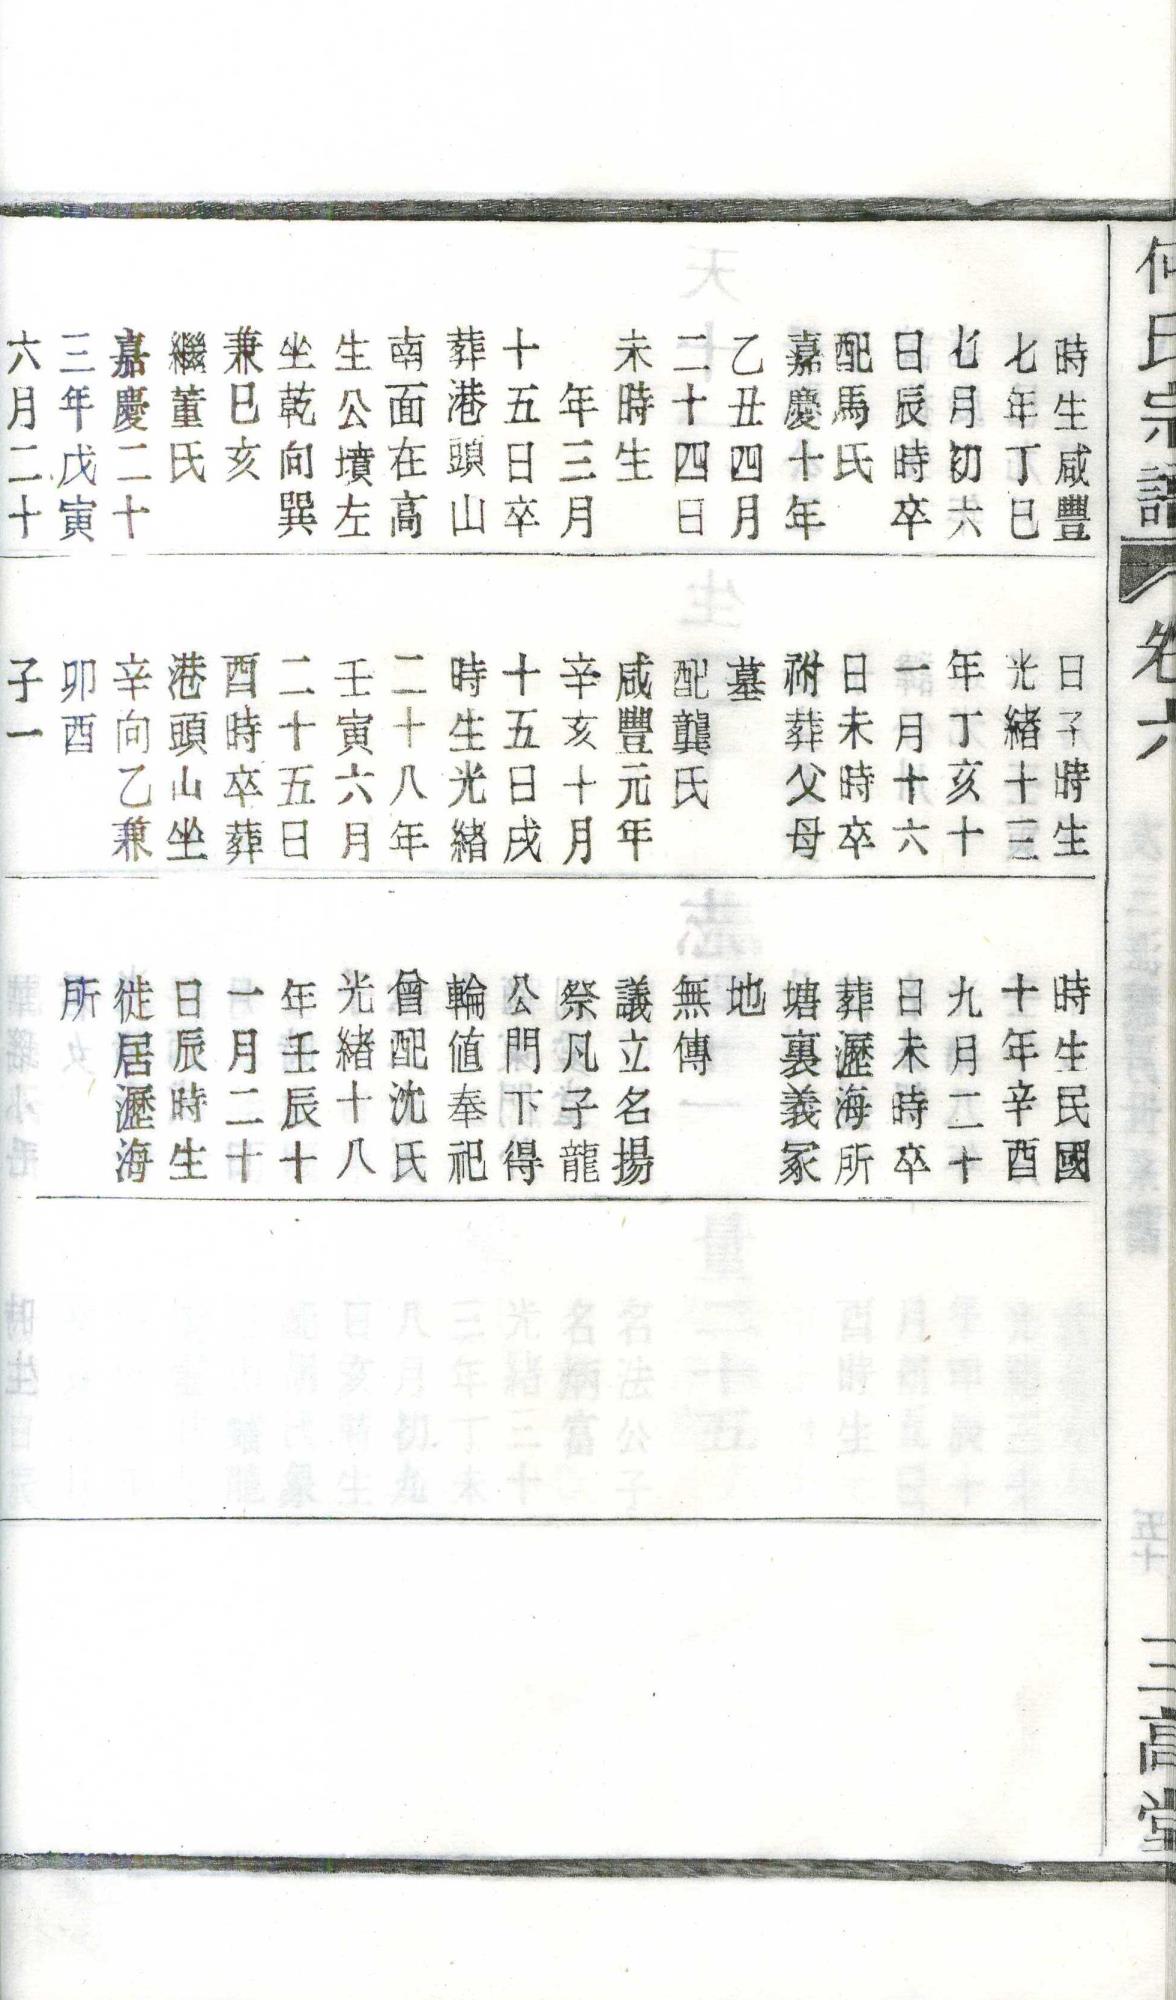 何氏宗譜
卷六
三高堂
時生咸豐
七年丁巳
七月初六
日辰時卒
配馬氏
嘉慶十年
乙丑四月
二十四日
未時生
年三月
十五日卒
葬港頭山
南面在高
生公墳左
坐乾向巽
兼巳亥
繼董氏
嘉慶二十
三年戊寅
六月二十
日子時生
光緒十三
年丁亥十
一月十六
日未時卒
祔葬父母
墓
配龔氏
咸豐元年
辛亥十月
十五日戌
時生光緒
二十八年
壬寅六月
二十五日
酉時卒葬
港頭山坐
辛向乙兼
卯酉
子一
時生民國
十年辛酉
九月二十
日未時卒
葬瀝海所
塘裏義冢
地
無傳
議立名揚
祭凡子龍
公門下得
輪値奉祀
曾配沈氏
光緒十八
年壬辰十
一月二十
日辰時生
徙居瀝海
所